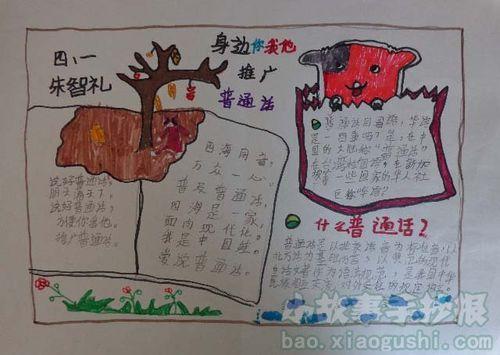 四、一
朱智礼
身边你我他
推广
普通话
说好普通话,
朋友满天下,
说好普通话,
方便你我他。
推广普通话。
四海同音,
万众一心,
普及普通话,
四海是一家,
面向现代化。
我是中国娃,
爱说普通话。
普通话与国语、华语
是一回事吗?是,在中
国的大陆称“普通话”
在台湾称国语,在新加
坡等一些国家的华人社
区称华语?
什么普通话?
普通话是以北京语音为标准音,以
北方话为基础方言,以典范的现代
白话文著作为语法规范,是
小故事手抄报
bao.xiaogushi.com